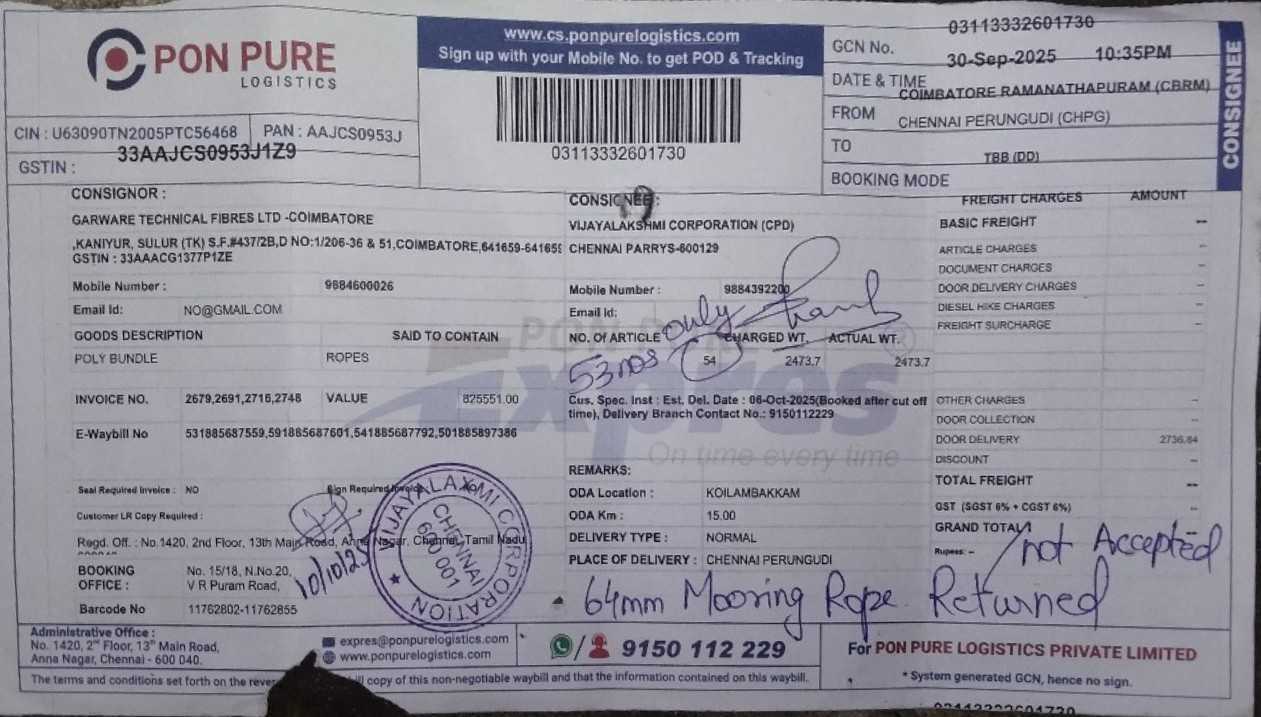 PON PURE
LOGISTICS
CIN : U63090TN2005PTC56468
PAN : AAJCS0953J
33AAJCS0953J1Z9
GSTIN :
www.cs.ponpurelogistics.com
Sign up with your Mobile No. to get POD & Tracking
03113332601730
03113332601730
GCN No.
30-Sep-2025 10:35PM
DATE & TIME
COIMBATORE RAMANATHAPURAM (CBRM)
FROM
CHENNAI PERUNGUDI (CHPG)
TO
TBB (DD)
BOOKING MODE
CONSIGNEE
CONSIGNOR :
GARWARE TECHNICAL FIBRES LTD -COIMBATORE
,KANIYUR, SULUR (TK) S.F.#437/2B,D NO:1/206-36 & 51,COIMBATORE,641659-641659
GSTIN : 33AAACG1377P1ZE
Mobile Number : 9884600026
Email Id: NO@GMAIL.COM
GOODS DESCRIPTION SAID TO CONTAIN
POLY BUNDLE ROPES
INVOICE NO. 2679,2691,2716,2748 VALUE 825551.00
E-Waybill No 531885687559,591885687601,541885687792,501885897386
Seal Required Invoice : NO Sign Required
Customer LR Copy Required :
Regd. Off. : No.1420, 2nd Floor, 13th Main Road, Anna Nagar, Chennai, Tamil Nadu
BOOKING OFFICE : No. 15/18, N.No.20,
V R Puram Road,
Barcode No 11762802-11762855
10/10/25
VIJAYALAXMI CORPORATION
CHENNAI
600 001
CONSIGNEE :
VIJAYALAKSHMI CORPORATION (CPD)
CHENNAI PARRYS-600129
Mobile Number : 9884392200
Email Id:
NO. Of ARTICLE CHARGED WT. ACTUAL WT.
54 2473.7 2473.7
53nos only
Cus. Spec. Inst : Est. Del. Date : 06-Oct-2025(Booked after cut off
time), Delivery Branch Contact No.: 9150112229
Expres
On time every time
REMARKS:
ODA Location : KOILAMBAKKAM
ODA Km : 15.00
DELIVERY TYPE : NORMAL
PLACE OF DELIVERY : CHENNAI PERUNGUDI
FREIGHT CHARGES AMOUNT
BASIC FREIGHT --
ARTICLE CHARGES --
DOCUMENT CHARGES --
DOOR DELIVERY CHARGES --
DIESEL HIKE CHARGES --
FREIGHT SURCHARGE --
OTHER CHARGES --
DOOR COLLECTION --
DOOR DELIVERY 2736.84
DISCOUNT --
TOTAL FREIGHT --
GST (SGST 6% + CGST 6%) --
GRAND TOTAL
Rupees: --
not Accepted
64mm Mooring Rope Returned
Administrative Office :
No. 1420, 2nd Floor, 13th Main Road,
Anna Nagar, Chennai - 600 040.
expres@ponpurelogistics.com
www.ponpurelogistics.com
9150 112 229
For PON PURE LOGISTICS PRIVATE LIMITED
* System generated GCN, hence no sign.
The terms and conditions set forth on the copy of this non-negotiable waybill and that the information contained on this waybill.
03113332601730